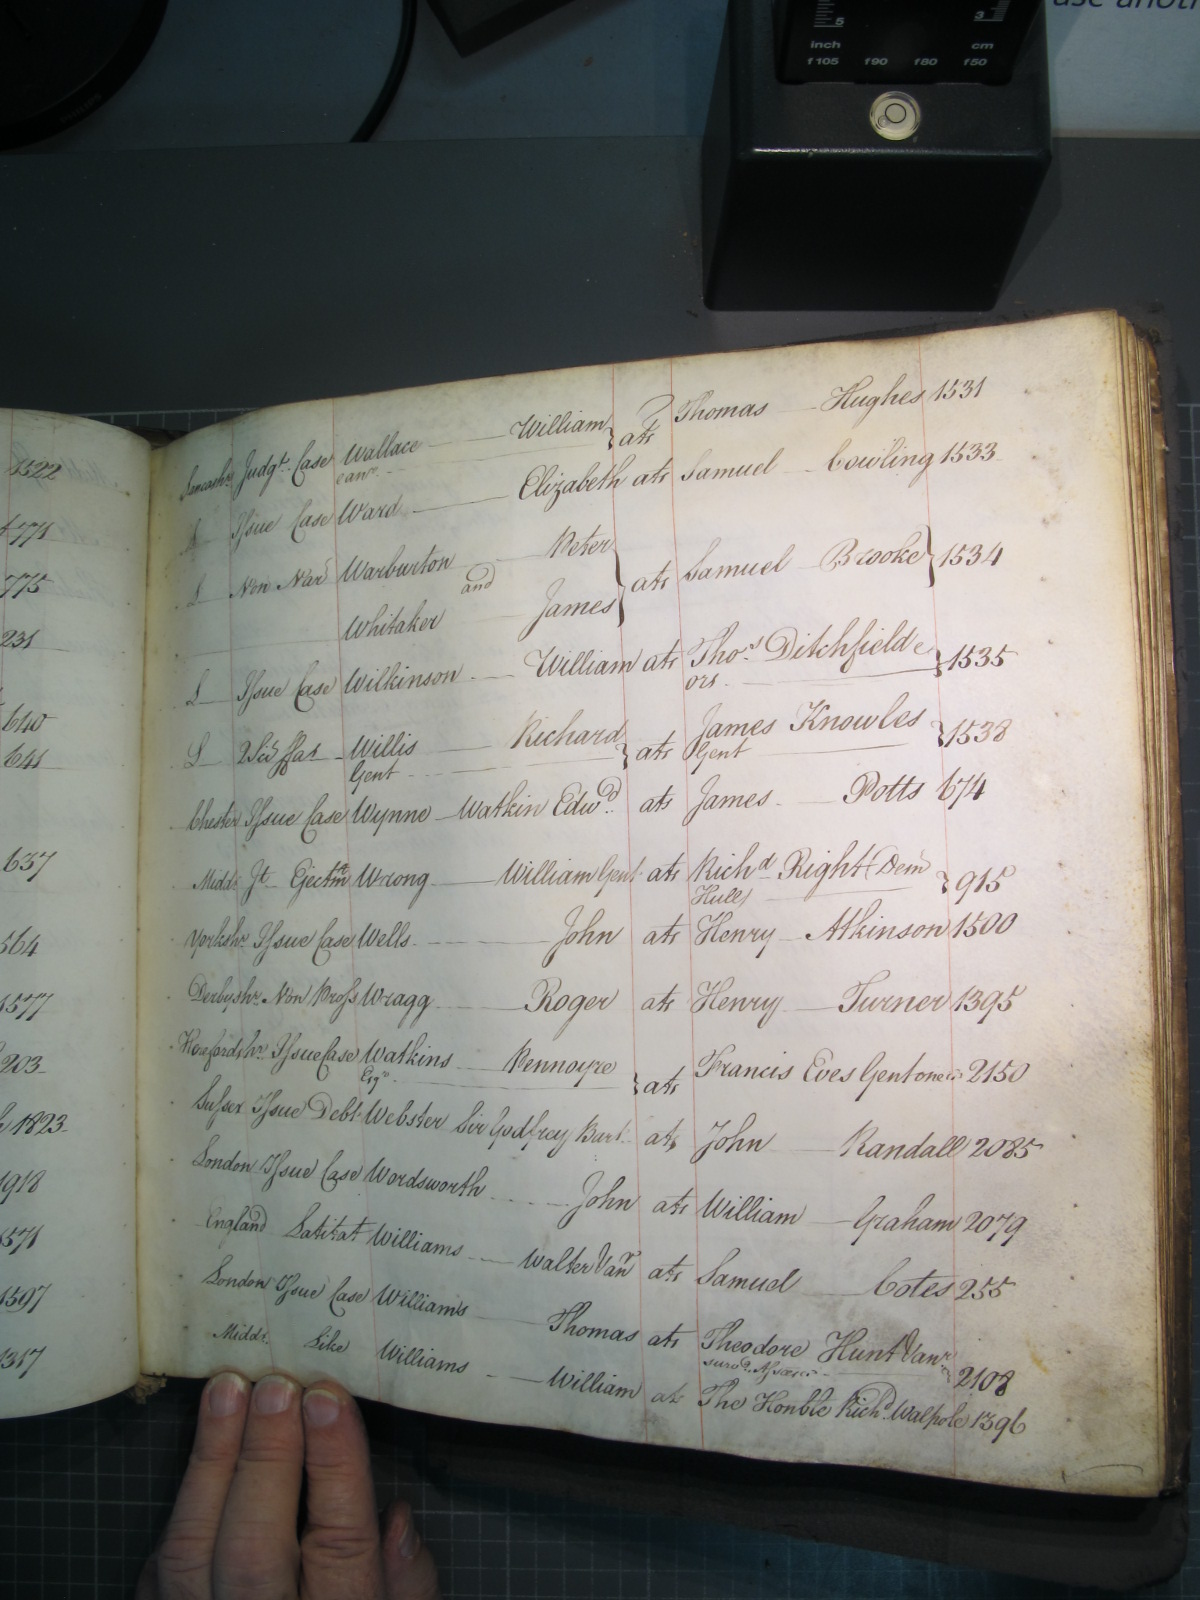 use anoth
5 3
inch cm
f105 f90 f80 f50
1522
775
231
640
641
637
564
1577
203
1823
918
571
1597
1317
Lancashr. Judgt. Case Wallace William } ats Thomas Hughes 1531
L Issue Case Ward Elizabeth ats Samuel Cowling 1533
L Non Nar Warburton Peter
and } ats Samuel Brooke } 1534
Whitaker James
L Issue Case Wilkinson William ats Thos. Ditchfield &
ors. } 1535
L Willis Richard } ats James Knowles } 1538
Gent Gent
Chester Issue Case Wynne Watkin Edwd. ats James Potts 674
Midds. Jt. Ejectmt Wrong William Gent ats Richd Right (Dem
Hull) } 915
Yorkshr. Issue Case Wells John ats Henry Atkinson 1500
Derbyshr. Non Pross Wragg Roger ats Henry Turner 1395
Herefordshr. Issue Case Watkins Pennoyre } ats Francis Eves Gent one &c 2150
Esqr.
Sussex Issue Debt Webster Sir Godfrey Bart. ats John Randall 2085
London Issue Case Wordsworth John ats William Graham 2079
England Latitat Williams Walter Van ats Samuel Cotes 255
London Issue Case Williams Thomas ats Theodore Hunt
2108
Midds. Like Williams William at The Honble Richd. Walpole 1396